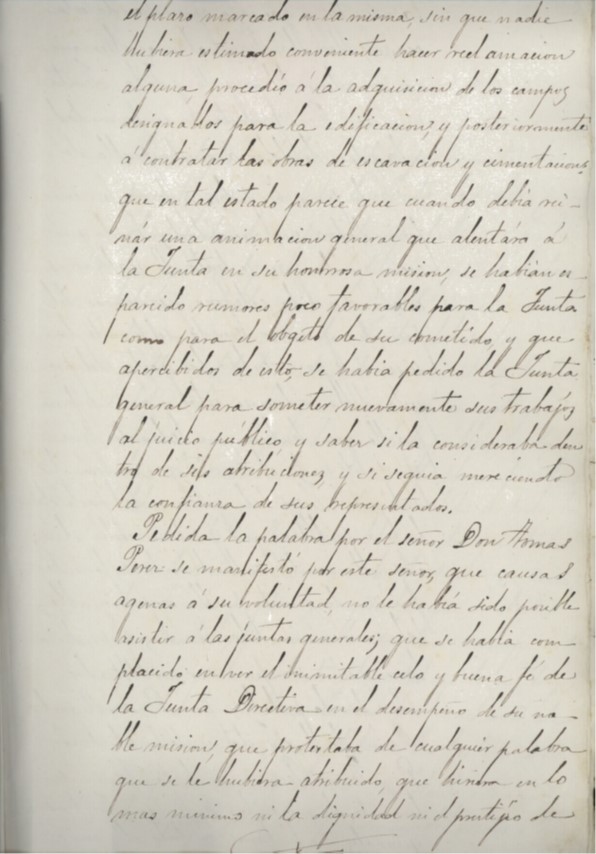 el plazo marcado en la misma, sin que nadie
hubiera estimado conveniente hacer reclamacion
alguna, procedió á la adquisicion de los campos
designados para la edificacion, y posteriormente
á contratar las obras de escavacion y cimentacion;
que en tal estado parece que cuando debía rei-
nár una animacion general que alentára á
la Junta en su honrrosa mision, se habían es-
parcido rumores poco favorables para la Junta
como para el obgeto de su cometido, y que
apercibidos de esto, se había pedido la Junta
general para someter nuevamente sus trabajos
al juicio público y saber si la consideraba den
tro de sus atribuciones y si seguia mereciendo
la confianza de sus representados.
Pedida la palabra por el señor Don Tomas
Perez se manifestó por este señor, que causas
agenas á su voluntad, no le había sido posible
asistir á las juntas generales; que se había com-
placido en ver el inimitable celo y buena fé de
la Junta Directiva en el desempeño de su no-
ble mision, que protestaba de cualquier palabra
que se le hubiera atribuido, que hiriera en lo
mas minimo ni la dignidad ni el prestigio de